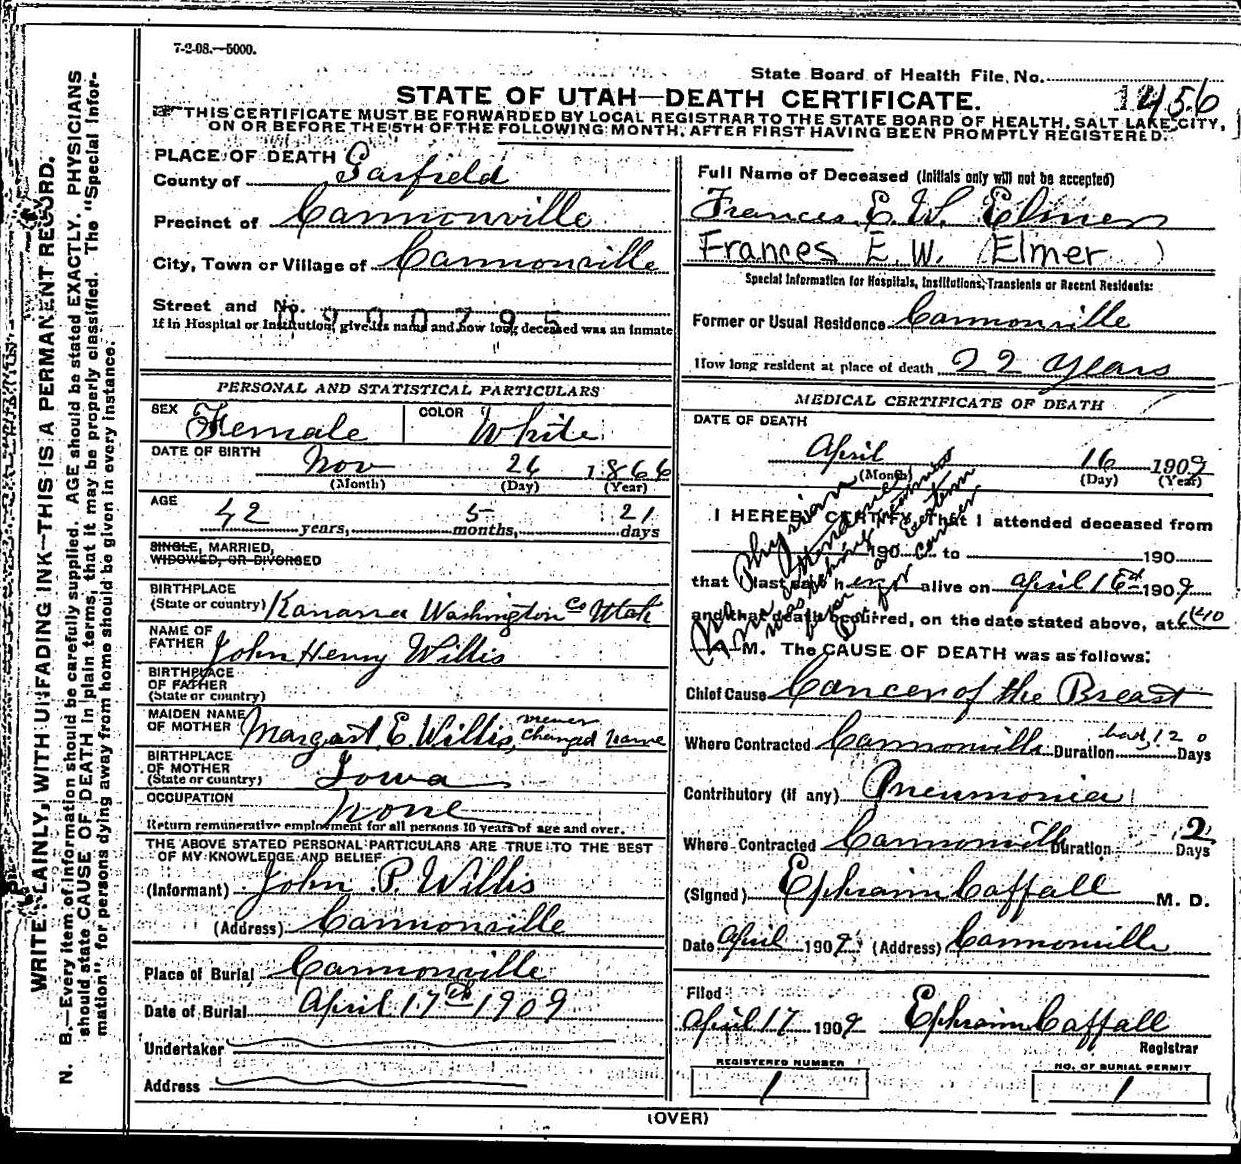 7-2-08.—5000.
State Board of Health File, No.
1456
STATE OF UTAH—DEATH CERTIFICATE.
THIS CERTIFICATE MUST BE FORWARDED BY LOCAL REGISTRAR TO THE STATE BOARD OF HEALTH, SALT LAKE CITY,
ON OR BEFORE THE 5TH OF THE FOLLOWING MONTH, AFTER FIRST HAVING BEEN PROMPTLY REGISTERED.
WRITE PLAINLY, WITH UNFADING INK—THIS IS A PERMANENT RECORD.
N. B.—Every item of information should be carefully supplied. AGE should be stated EXACTLY. PHYSICIANS
should state CAUSE OF DEATH in plain terms, that it may be properly classified. The "Special Infor-
mation" for persons dying away from home should be given in every instance.
PLACE OF DEATH
County of Garfield
Precinct of Cannonville
City, Town or Village of Cannonville
Street and No.
If in Hospital or Institution, give its name and how long deceased was an inmate
PERSONAL AND STATISTICAL PARTICULARS
SEX Female COLOR White
DATE OF BIRTH Nov 26 1866
(Month) (Day) (Year)
AGE
42 years, 5 months, 21 days
SINGLE, MARRIED,
WIDOWED, OR DIVORCED
BIRTHPLACE
(State or country) Kanarra Washington Co Utah
NAME OF
FATHER John Henry Willis
BIRTHPLACE
OF FATHER
(State or country)
MAIDEN NAME
OF MOTHER Margart E. Willis, never changed name
BIRTHPLACE
OF MOTHER
(State or country) Iowa
OCCUPATION None
Return remunerative employment for all persons 10 years of age and over.
THE ABOVE STATED PERSONAL PARTICULARS ARE TRUE TO THE BEST
OF MY KNOWLEDGE AND BELIEF
(Informant) John P. Willis
(Address) Cannonville
Place of Burial Cannonville
Date of Burial April 17th 1909
Undertaker
Address
Full Name of Deceased (Initials only will not be accepted)
Frances E. W. Elmer
Frances E. W. (Elmer )
Special Information for Hospitals, Institutions, Transients or Recent Residents:
Former or Usual Residence Cannonville
How long resident at place of death 22 years
MEDICAL CERTIFICATE OF DEATH
DATE OF DEATH
April 16 1909
(Month) (Day) (Year)
I HEREBY CERTIFY, That I attended deceased from
190 to 190
that I last saw her alive on April 16 1909
and that death occurred, on the date stated above, at
M. The CAUSE OF DEATH was as follows:
No Physician
in attendance
was
Cancer
Chief Cause Cancer of the Breast
Where Contracted Cannonville Duration 120 Days
Contributory (if any) Pneumonia
Where Contracted Cannonville Duration 2 Days
(Signed) Ephraim Caffall M. D.
Date April 1909 (Address) Cannonville
Filed
April 17 1909 Ephraim Caffall
Registrar
REGISTERED NUMBER
1
NO. OF BURIAL PERMIT
1
(OVER)